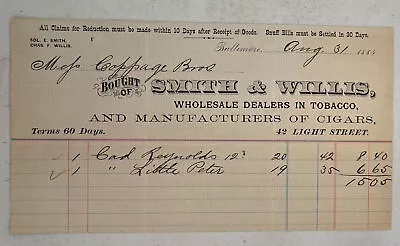 All Claims for Reduction must be made within 10 Days after Receipt of Goods. Snuff Bills must be Settled in 30 Days.
SOL. E. SMITH.
CHAS. F. WILLIS.
Baltimore, Aug 31 1884
Mess Coppage Bros
BOUGHT OF SMITH & WILLIS,
WHOLESALE DEALERS IN TOBACCO,
AND MANUFACTURERS OF CIGARS,
Terms 60 Days. 42 LIGHT STREET.
1 Cad Reynolds 12s 20 42 8 40
1 " Little Peter 19 35 6 65
15 05